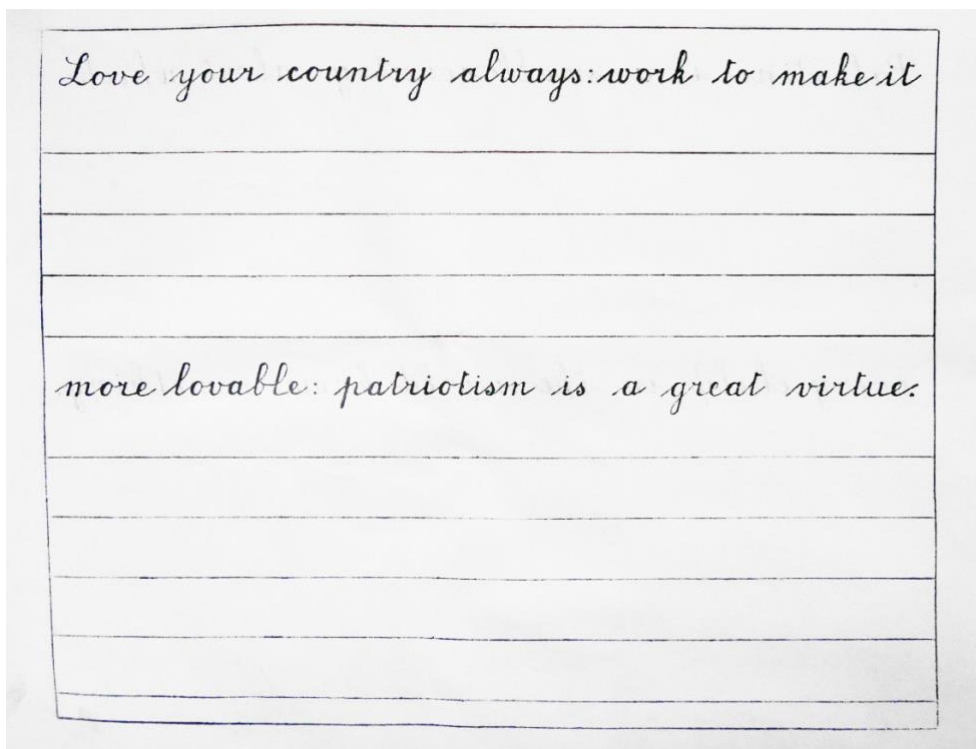 Love your country always: work to make it
more lovable: patriotism is a great virtue.